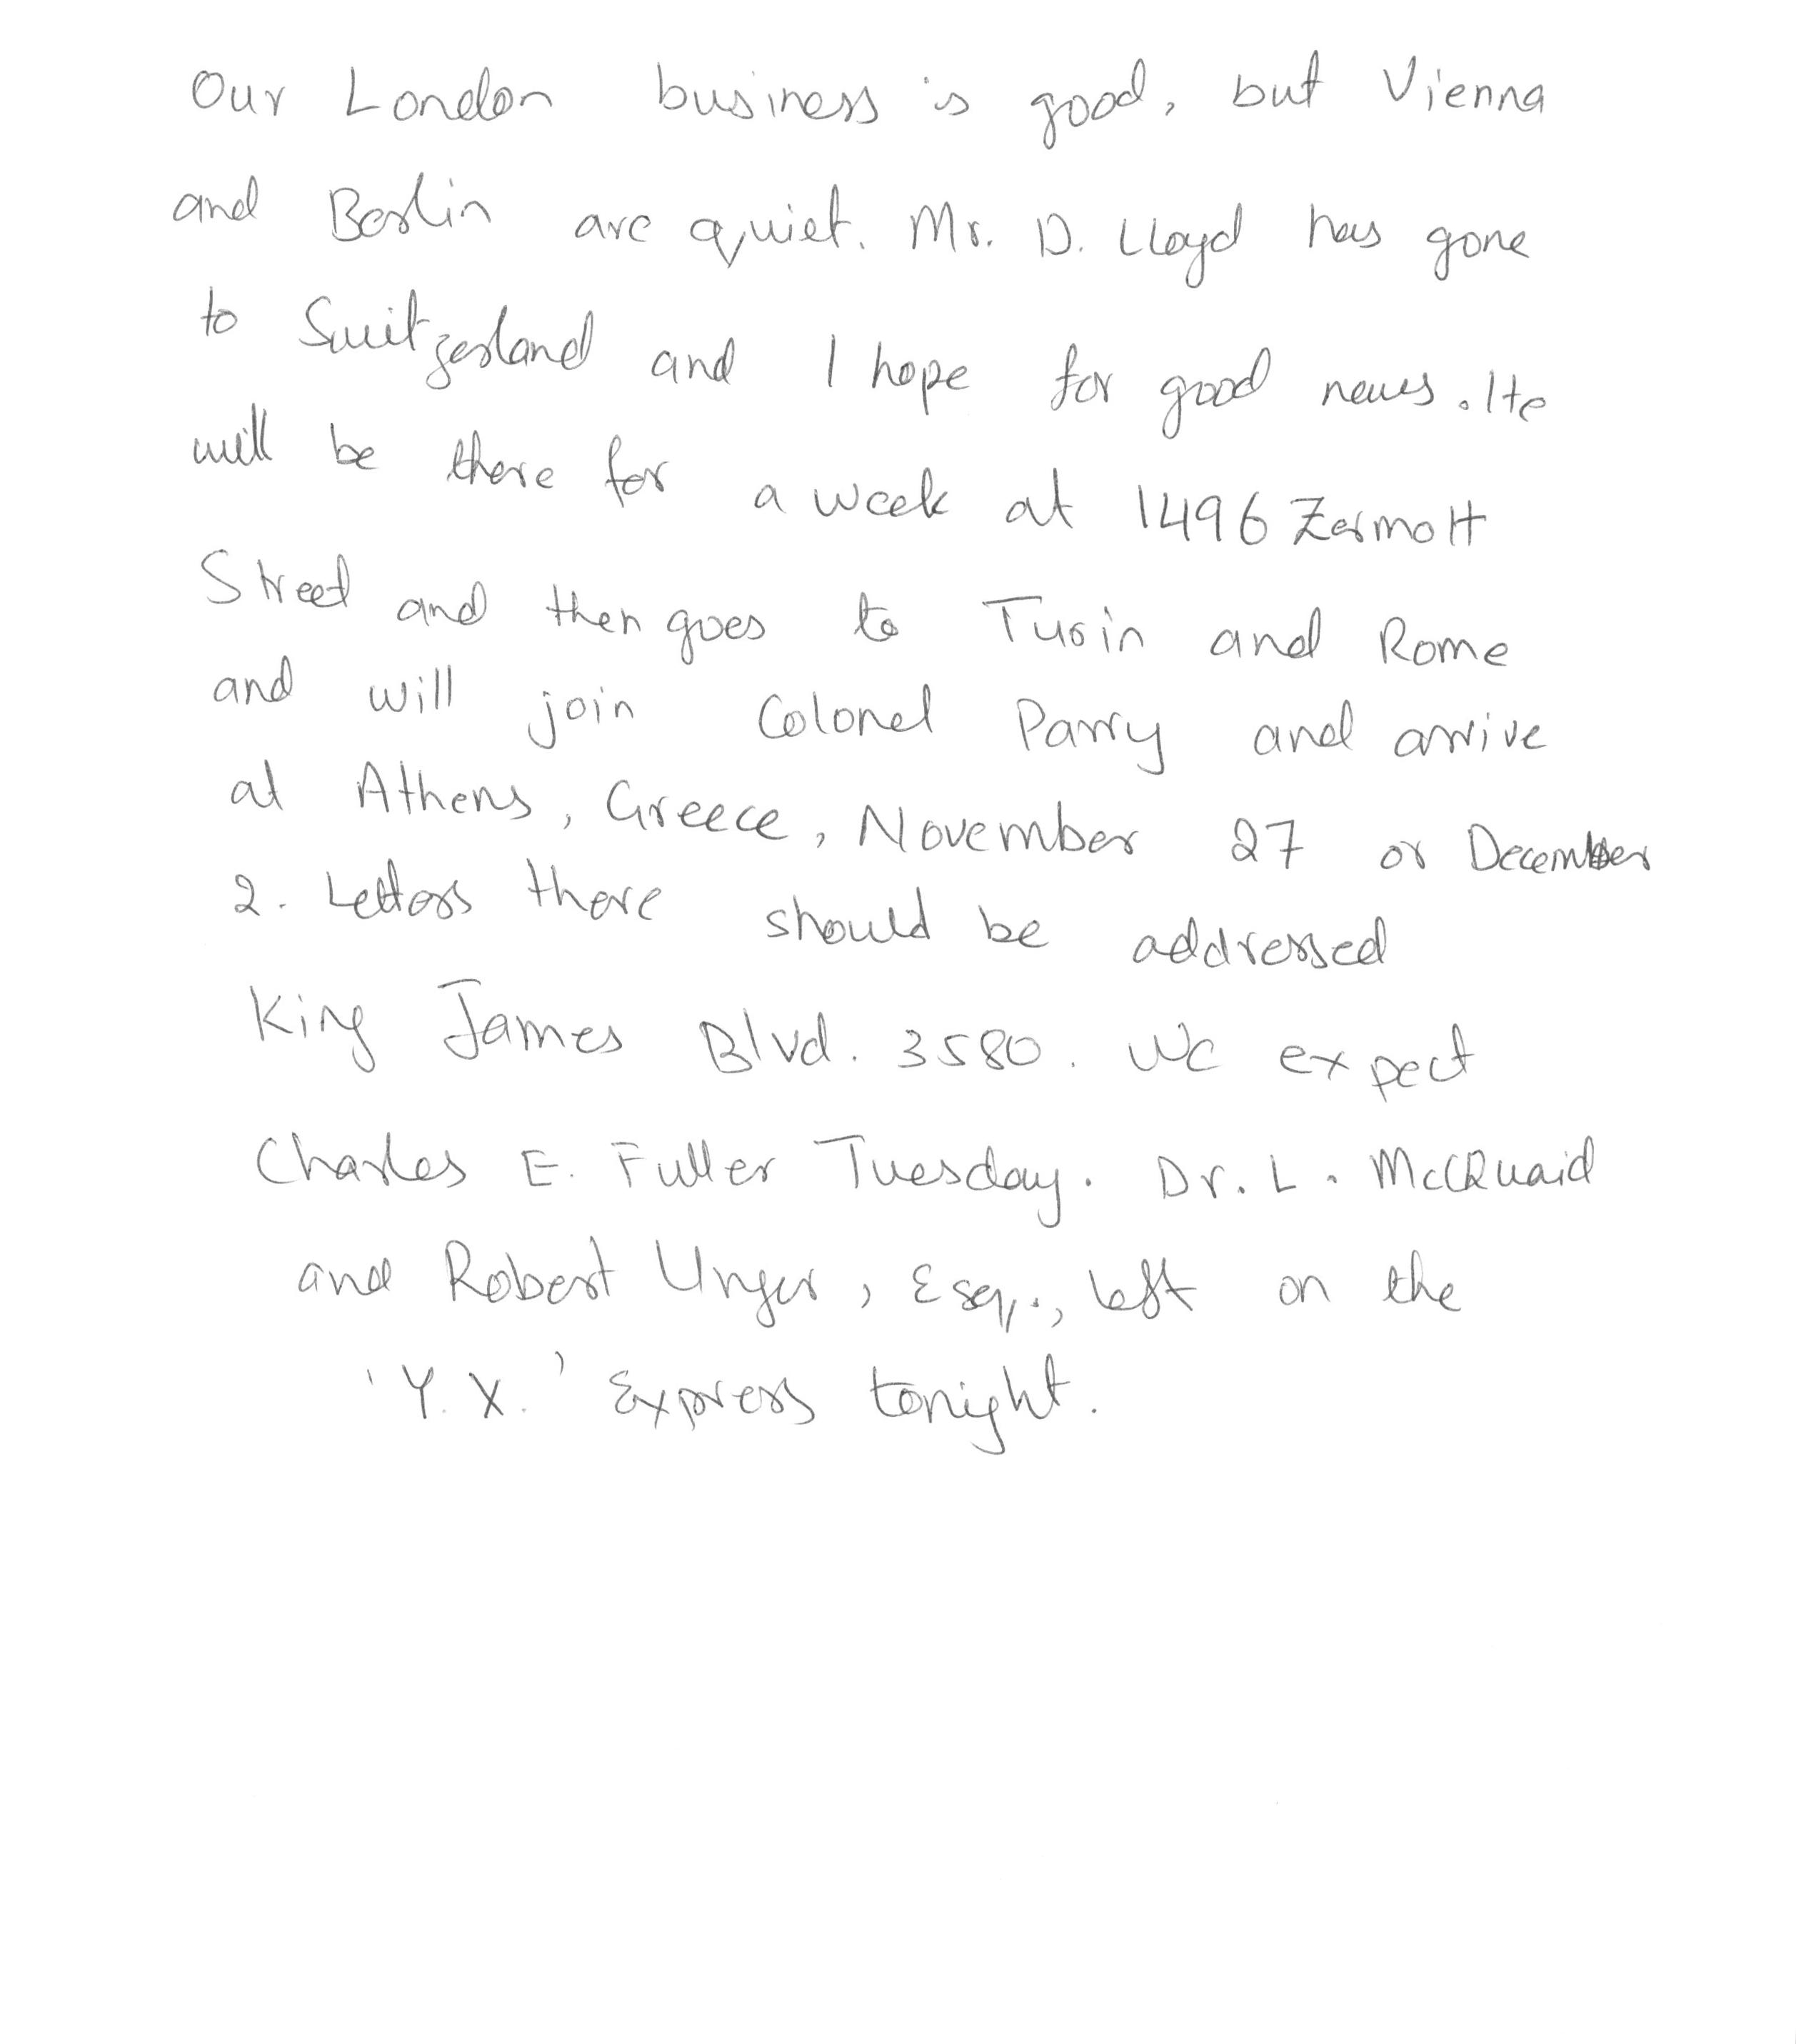 Our London business is good, but Vienna
and Berlin are quiet. Mr. D. Lloyd has gone
to Switzerland and I hope for good news. He
will be there for a week at 1496 Zermott
Street and then goes to Turin and Rome
and will join Colonel Parry and arrive
at Athens, Greece, November 27 or December
2. Letters there should be addressed
King James Blvd. 3580. We expect
Charles E. Fuller Tuesday. Dr. L. McQuaid
and Robert Unger, Esq., left on the
'Y. X.' Express tonight.